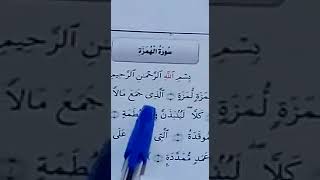 سُورَةُ الْهُمَزَةِ
بِسْمِ اللَّهِ الرَّحْمَٰنِ الرَّحِيمِ
لُّمَزَةٍ ۝ الَّذِي جَمَعَ مَالًا
كَلَّا ۖ لَيُنبَذَنَّ
الَّتِي عَلَى
عَمَدٍ مُّمَدَّدَةٍ